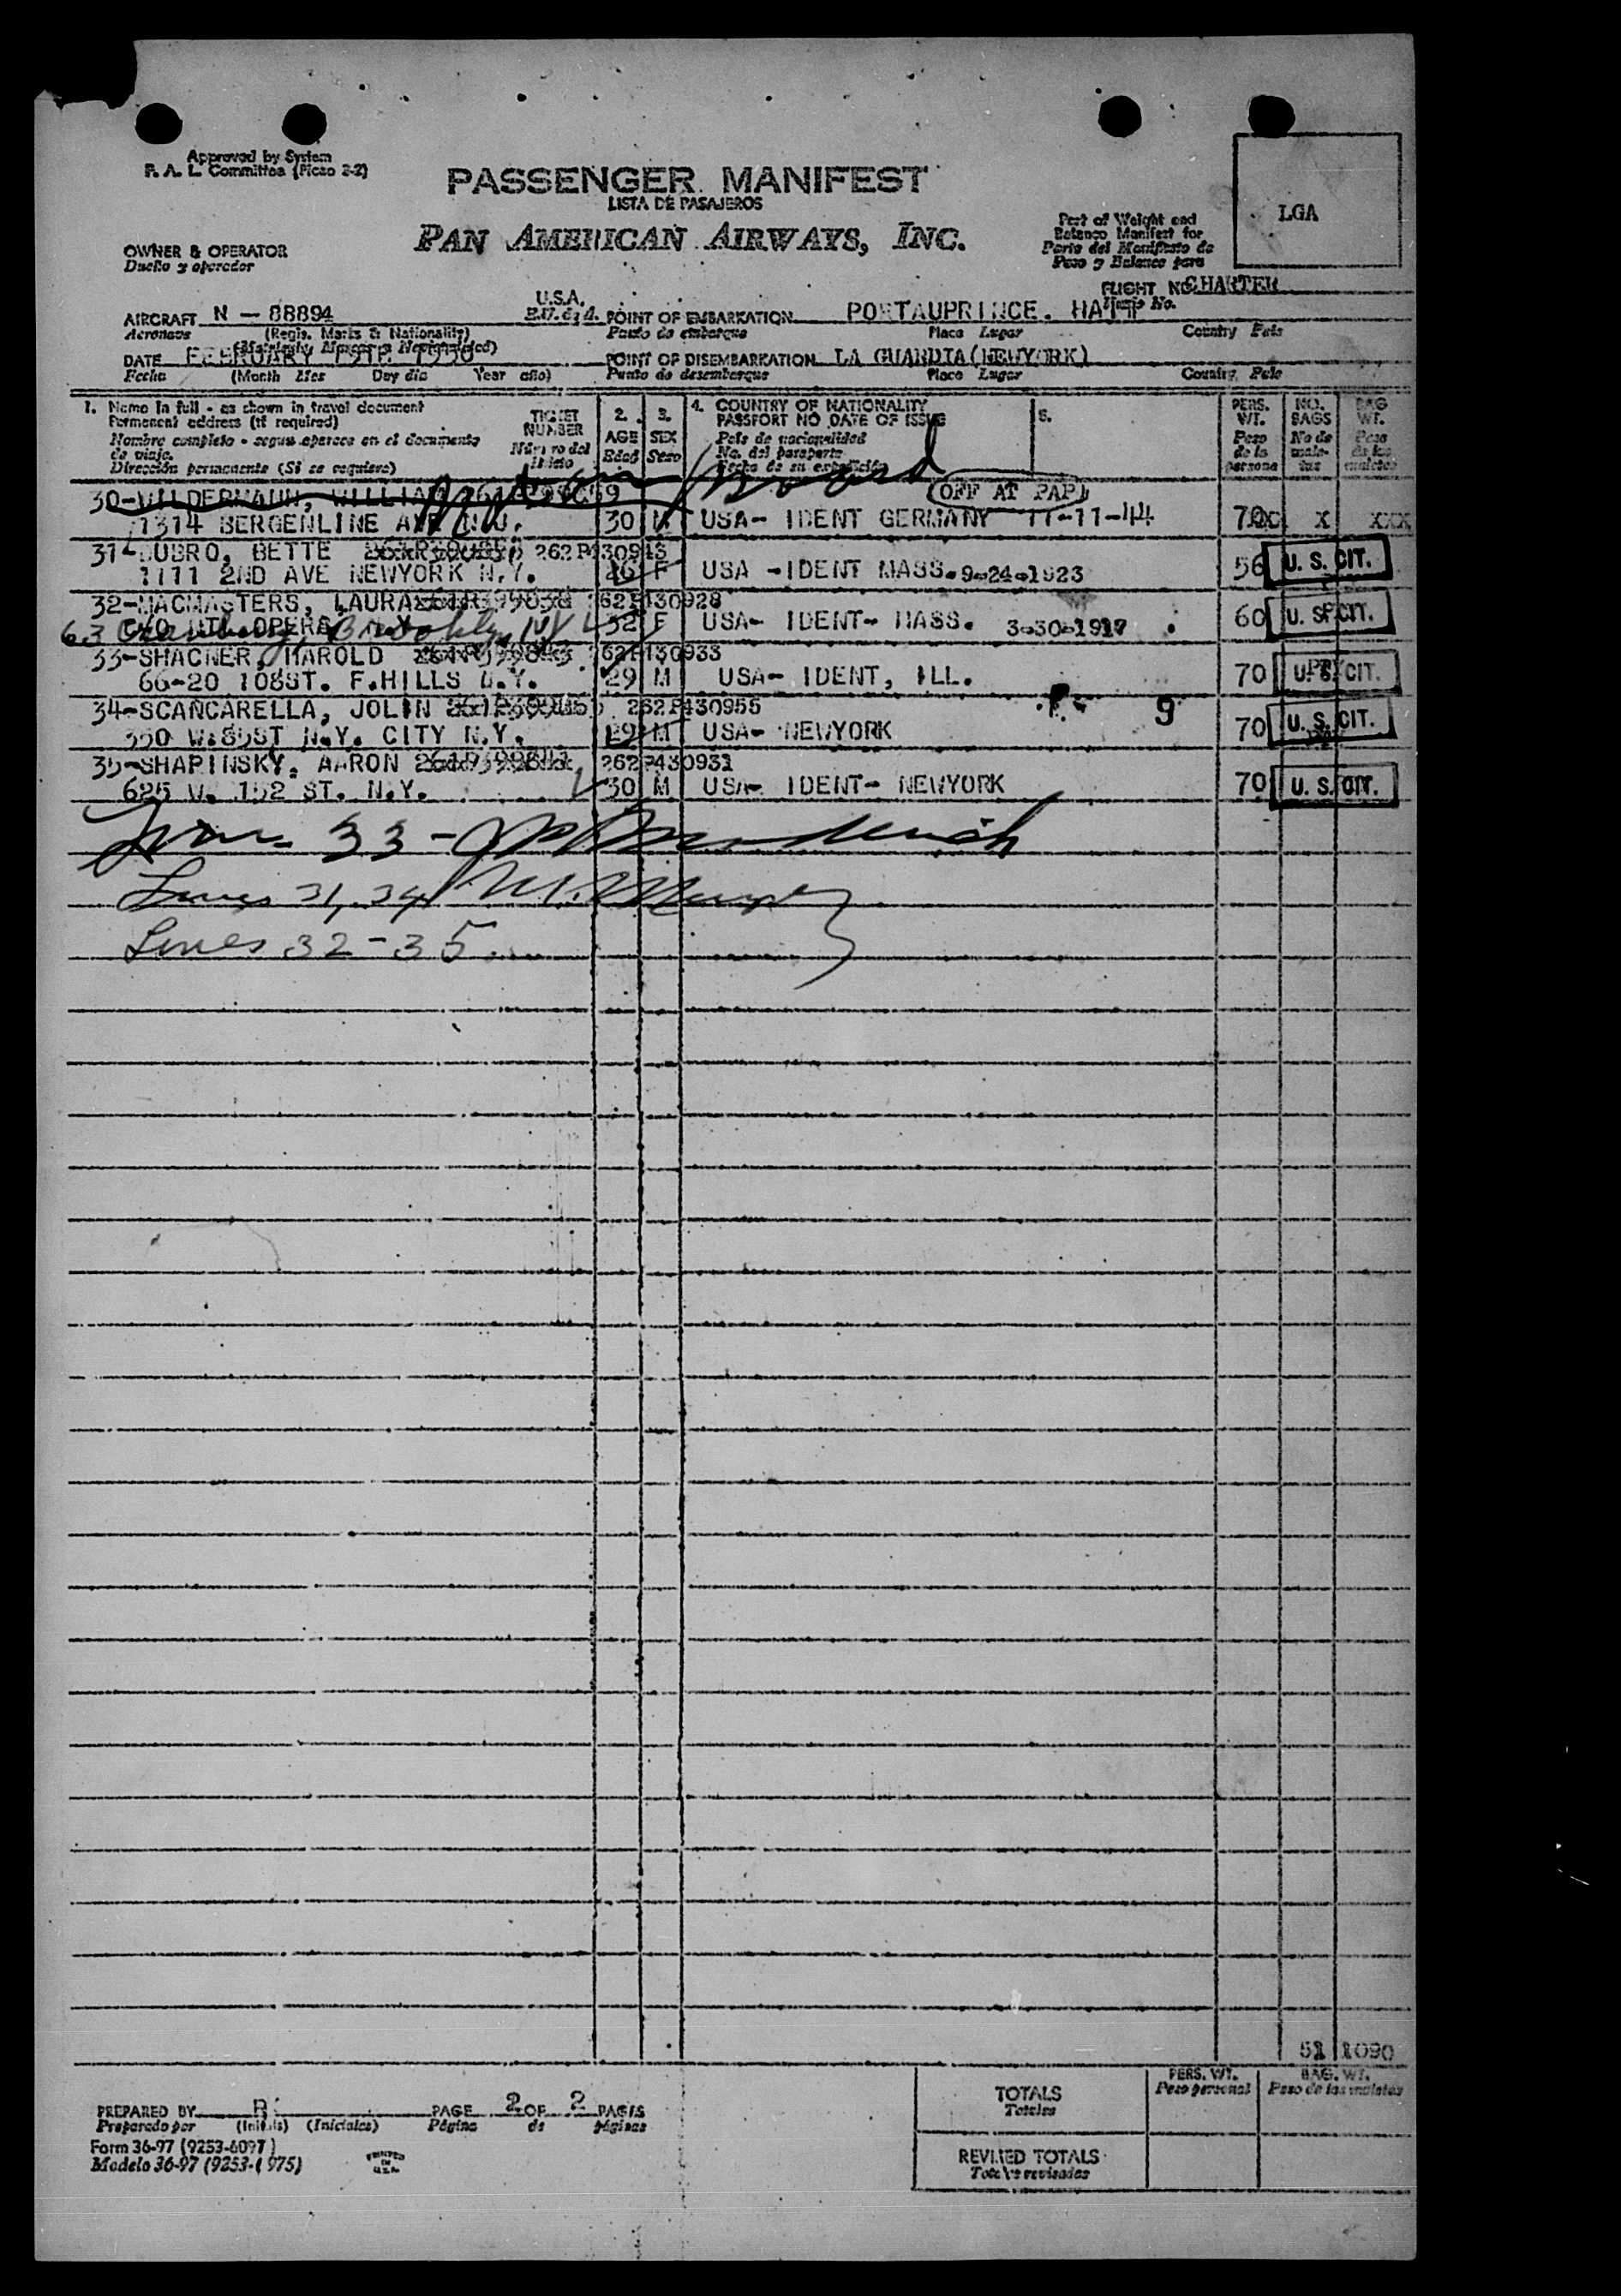 Approved by System
F. A. L. Committee (Picao 2-2)
PASSENGER MANIFEST
LISTA DE PASAJEROS
PAN AMERICAN AIRWAYS, INC.
Part of Weight and
Balance Manifest for
Parte del Manifiesto de
Peso y Balance para
LGA
OWNER & OPERATOR
Dueño y operador
FLIGHT NO. CHARTER
AIRCRAFT N - 88894 U.S.A. POINT OF EMBARKATION PORTAUPRINCE. HAITI
Aeronave (Regis. Marks & Nationality) E.U. de A. Punto de embarque Place Lugar Country País
DATE FEBRUARY 1950 POINT OF DISEMBARKATION LA GUARDIA(NEWYORK)
Fecha (Month Mes Day día Year año) Punto de desembarque Place Lugar Country País
1. Name in full - as shown in travel document
Permanent address (if required)
Nombre completo - segun aparece en el documento
de viaje.
Dirección permanente (Si se requiere)
TICKET
NUMBER
Número del
billete
2.
AGE
Edad
3.
SEX
Sexo
4. COUNTRY OF NATIONALITY
PASSPORT NO DATE OF ISSUE
País de nacionalidad
No. del pasaporte
Fecha de su expedición
5.
PERS.
WT.
Peso
de la
persona
NO.
BAGS
No de
male-
tas
BAG
WT.
Peso
de las
maletas
30-WILDERMANN, WILLIAM OFF AT PAP
1314 BERGENLINE AVE N.J. 30 M USA- IDENT GERMANY 11-11-44 70 X XXX
31-DUBRO, BETTE 262P430943
1111 2ND AVE NEWYORK N.Y. 26 F USA -IDENT MASS. 9-24-1923 56 U. S. CIT.
32-MACMASTERS, LAURA 262P430928
C/O OPERA N.Y. 32 F USA- IDENT- MASS. 3-30-1917 60 U. S. CIT.
63 Brooklyn, NY
33-SHACNER, HAROLD 262P430933
66-20 108ST. F.HILLS N.Y. 29 M USA- IDENT, ILL. 70 U. S. CIT.
34-SCANCARELLA, JOLIN 262P430956 9
350 W.85ST N.Y. CITY N.Y. 29 M USA- NEWYORK 70 U. S. CIT.
35-SHAPINSKY, AARON 262P430931
625 W. 152 ST. N.Y. 30 M USA- IDENT- NEWYORK 70 U. S. CIT.
33 -
Lines 31, 34
Lines 32-35
51 1090
TOTALS
Totales
PERS. WT.
Peso personal
BAG. WT.
Peso de las maletas
REVISED TOTALS
Totales revisados
PREPARED BY PAGE 2 OF 2 PAGES
Preparado por (Initials) (Iniciales) Página de páginas
Form 36-97 (9253-6097)
Modelo 36-97
PRINTED
IN
U.S.A.